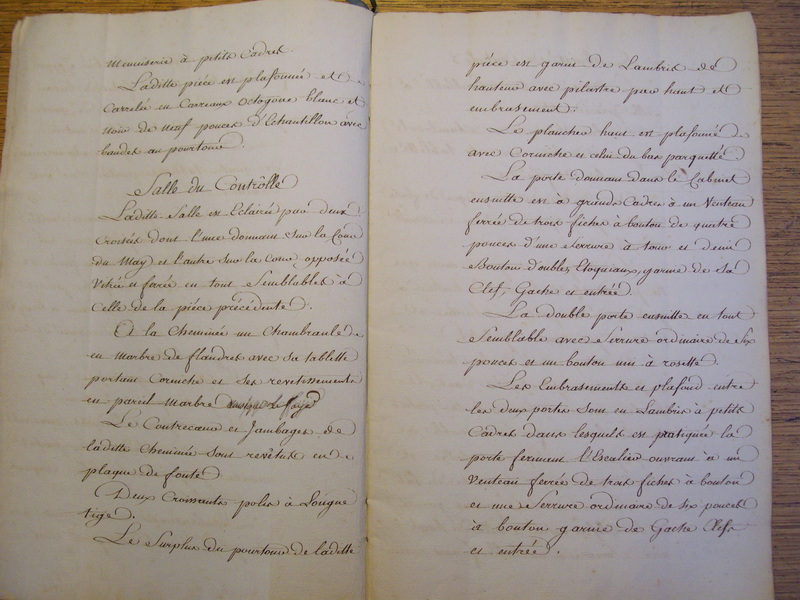 menuiserie à petits Cadres.
Laditte piéce est plafonnée et
Carrelée en Carreaux octogone blanc et
noir de neuf pouces d'Echantillon avec
bandes au pourtour
Salle du Contrôlle
Laditte Salle est Eclairée par deux
Croisées dont l'une donnant sur la Cour
du May, et l'autre sur la cour opposée
Vitrée et farée en tout Semblables à
Celle de la piéce précédente.
A la Cheminée un Chambranle
en marbre de flandres avec sa tablette
portant Corniche et Ses revetissements
en pareil marbre
Le Contrecœur et Jambages de
laditte Cheminée Sont revêtus en
plaque de fonte
Deux Croissants polis à Longue
tige.
Le Surplus du pourtour de laditte
piéce est garnie de Lambris de
hauteur avec pilastre par haut et
embrasement.
Le plancher haut est plafonné
avec Corniche et celui du bas parquetté.
La porte donnant dans le Cabinet
ensuitte est à grands Cadres à un Venteau
ferrée de trois fiches à bouton de quatre
pouces d'une Serrure à tour et demi
Bouton double, Etoquiaux, garnie de sa
Clef, Gache et entrée.
La double porte ensuitte en tout
Semblable avec Serrure ordinaire de Six
pouces et un bouton uni à rosette.
Les Embrasements et plafond entre
les deux portes Sont en Lambris à petits
Cadres dans lesquels est pratiquée la
porte fermant l'Escalier ouvrant à un
Venteau ferrée de trois fiches à bouton
et une Serrure ordinaire de six pouces
à bouton garnie de Gache Clef
et entrée.